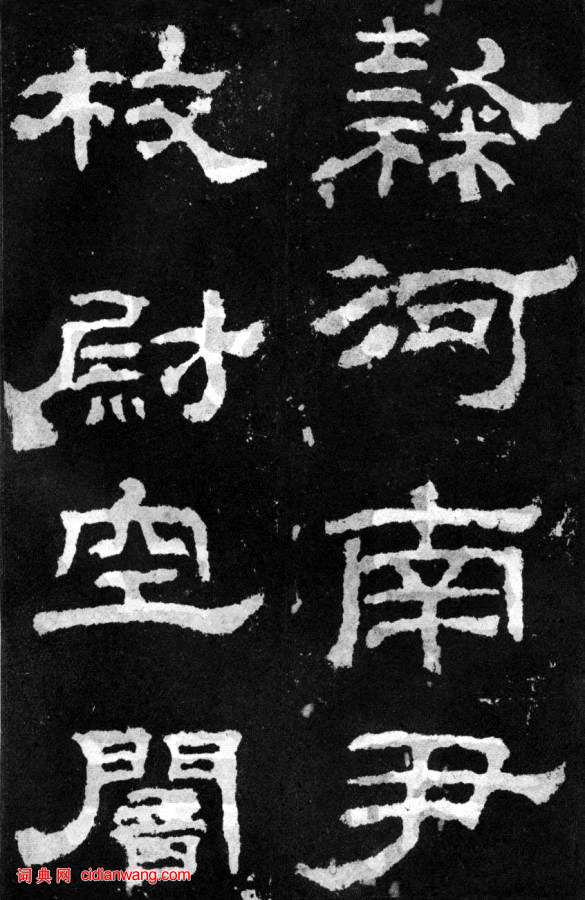 隸河南尹
校尉空闇
词典网 cidianwang.com